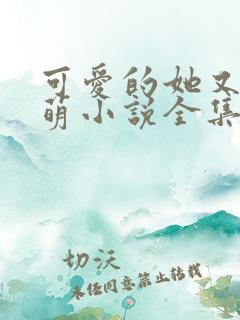 可爱的她又
萌小说全集
切沃
未经同意禁止转载